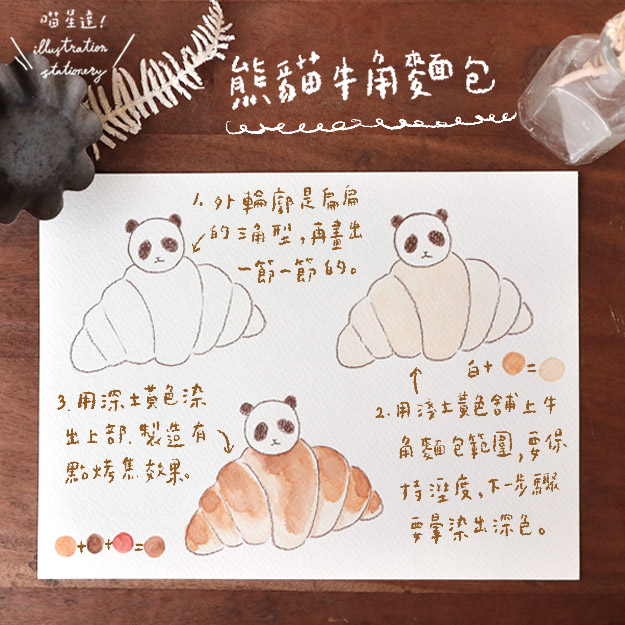 喵星達!
illustration
stationery
熊貓牛角麵包
1. 外輪廓是扁扁
的三角型,再畫出
一節一節的。
白+ =
2. 用淺土黃色舖上牛
角麵包範圍,要保
持溼度,下一步驟
要暈染出深色。
3. 用深土黃色染
出上部.製造有
點烤焦效果。
+ + =